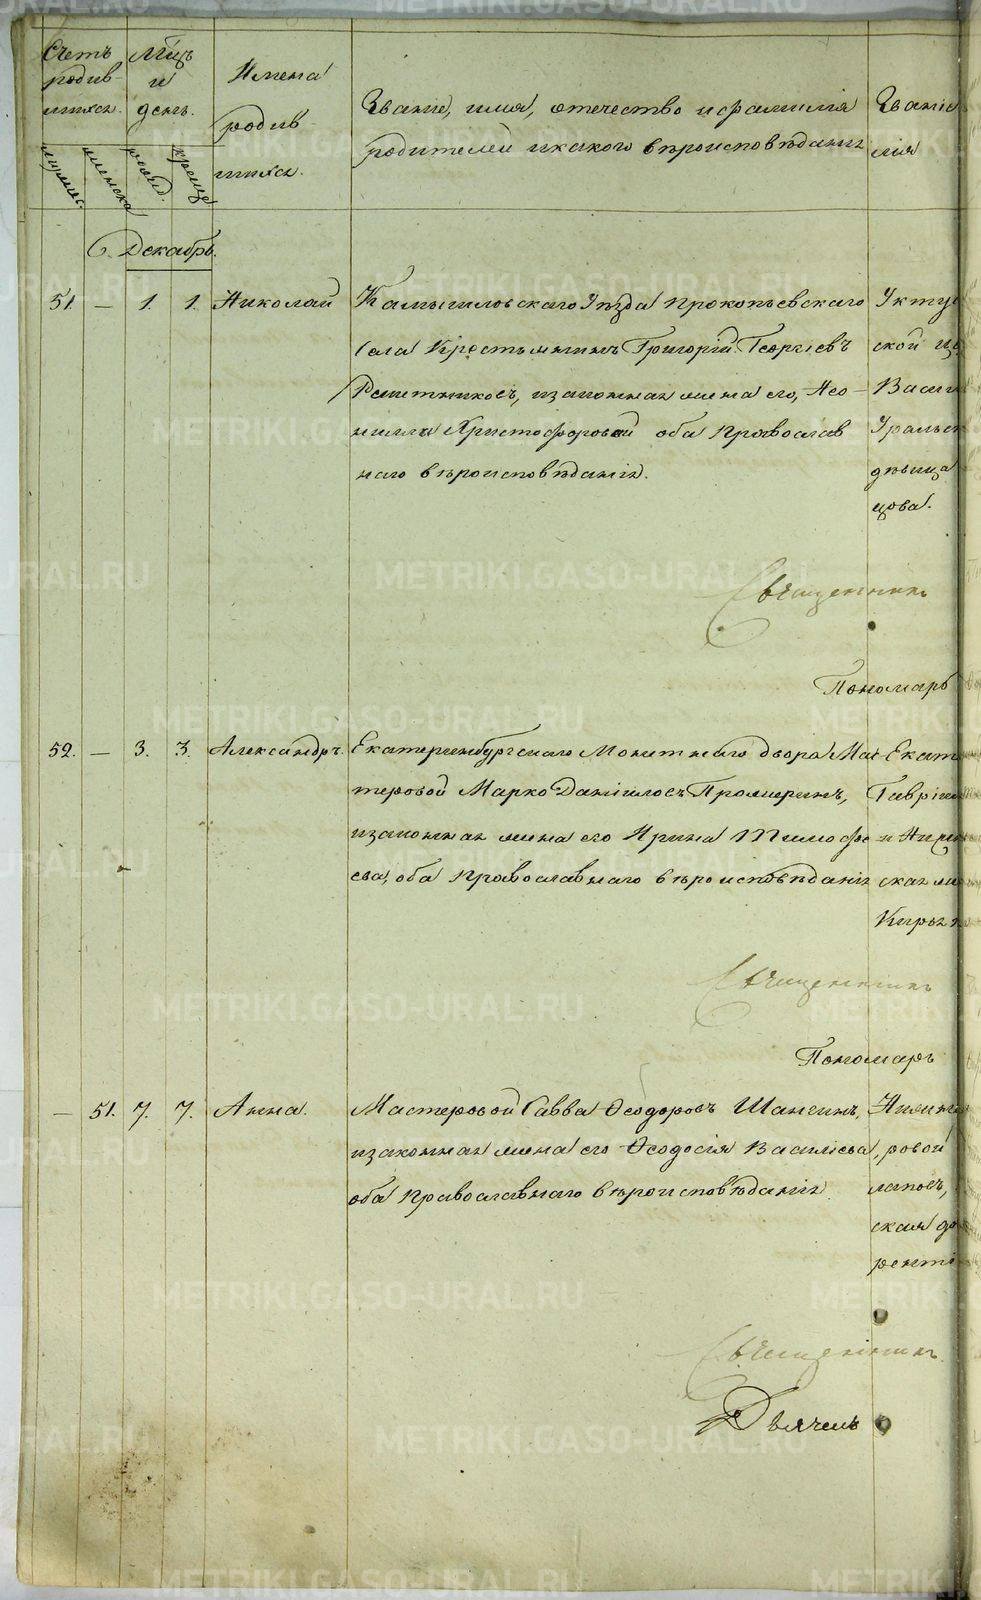 Счетъ родив- шихся.
мужеск.
женска
Мцъ и день.
рожд.
крещ.
Имена родив- шихся.
Званіе, имя, отечество и фамилія
родителей и какого вѣроисповѣданія
Званіе
лія
Декабрь.
51. — 1. 1. Николай
Камышловскаго Уѣзда Прокопьевскаго
села Крестьянинъ Григорій Георгіевъ
Решетниковъ, изаконная жена его, Нео-
нилла Христофоровой оба Православ
наго вѣроисповѣданія.
Укту
ской це
Васи
Уральск
дѣвица
цова.
Священникъ
Пономарь
52. — 3. 3. Александръ.
Екатеринбургскаго Монетнаго двора Мас
теровой Марко Даниловъ Промеринъ,
изаконная жена его Ирина Тимофе
ева, оба Православнаго вѣроисповѣданія
Екат
Гаврі
ская
Кирья
Священникъ
Пономарь
— 51. 7. 7. Анна.
Мастеровой Савва Ѳеодоровъ Шангинъ,
изаконная жена его Ѳеодосія Васильева,
оба Православнаго вѣроисповѣданія
ровой
лаповъ,
ская до
ренті
Священникъ
Дьячекъ
METRIKI.GASO-URAL.RU